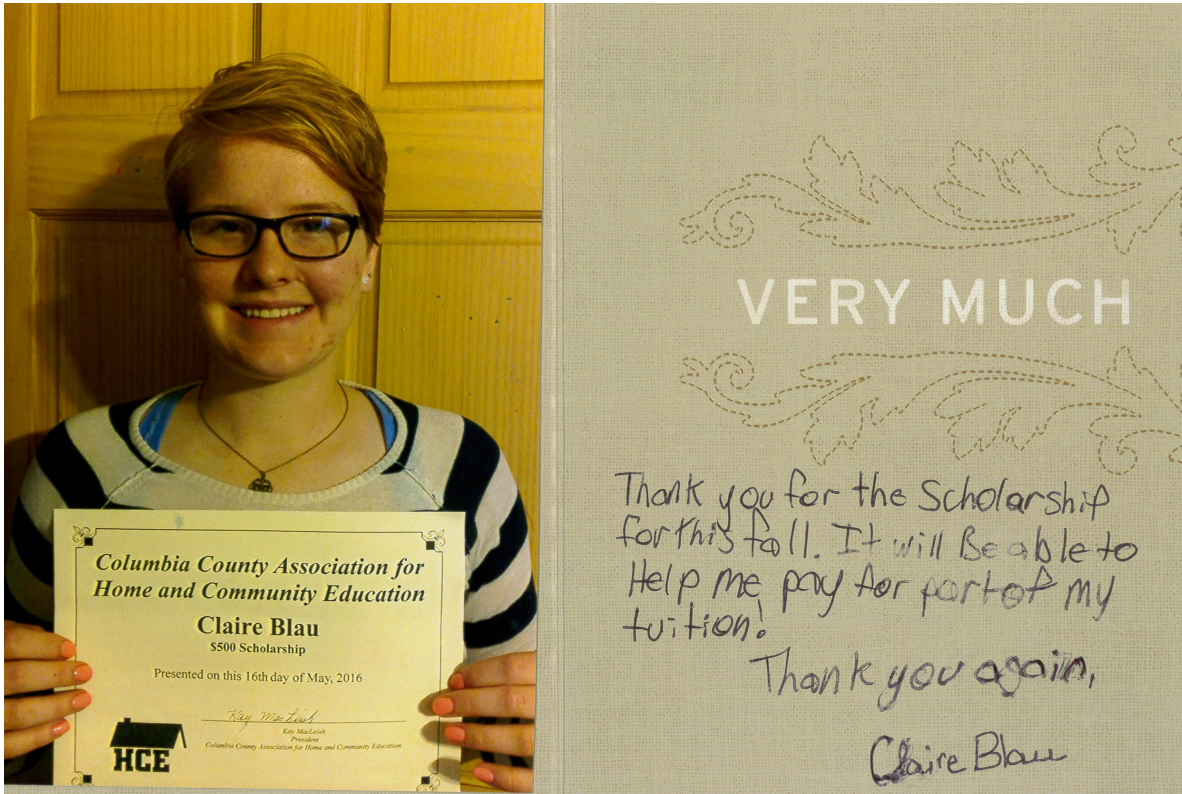 Columbia County Association for
Home and Community Education
Claire Blau
$500 Scholarship
Presented on this 16th day of May, 2016
Kay MacLeish
Kay MacLeish
President
Columbia County Association for Home and Community Education
HCE
VERY MUCH
Thank you for the Scholarship
for this fall. It will Be able to
Help me pay for part of my
tuition!
Thank you again,
Claire Blau